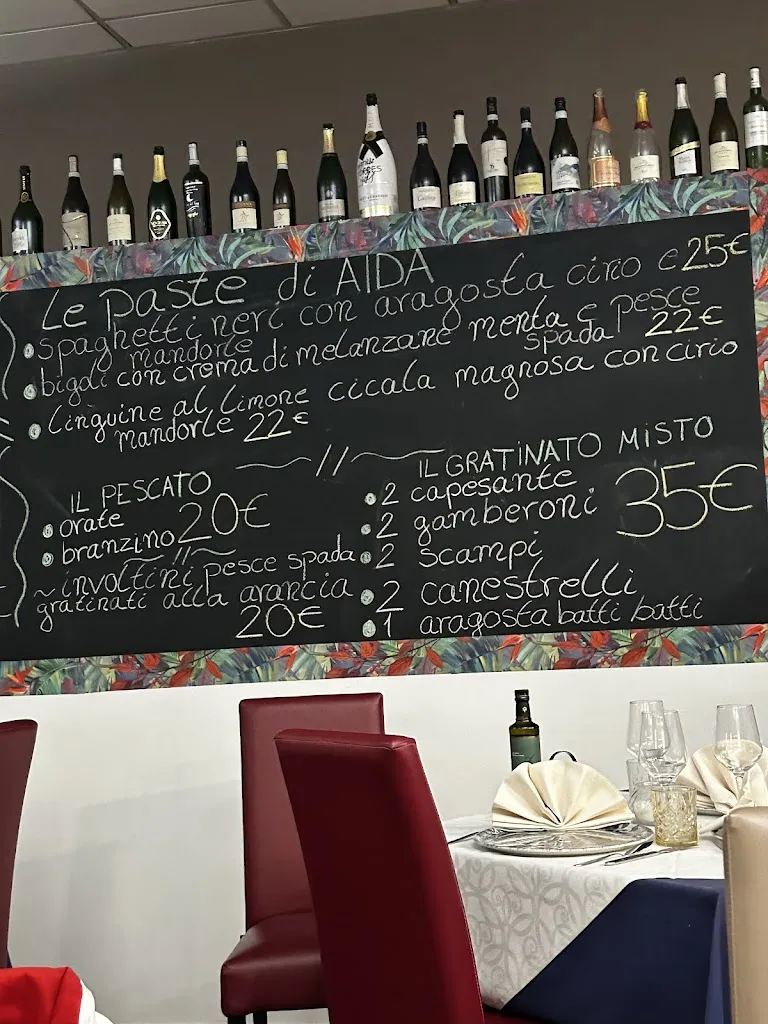 Le paste di AIDA
spaghetti neri con aragosta cirio e 25€
mandorle
bigoli con crema di melanzane menta e pesce
spada 22€
linguine al limone cicala magnosa con cirio
mandorle 22€
IL PESCATO
orate
branzino 20€
~ involtini pesce spada
gratinati alla arancia
20€
IL GRATINATO MISTO
2 capesante
2 gamberoni 35€
2 scampi
2 canestrelli
1 aragosta batti batti